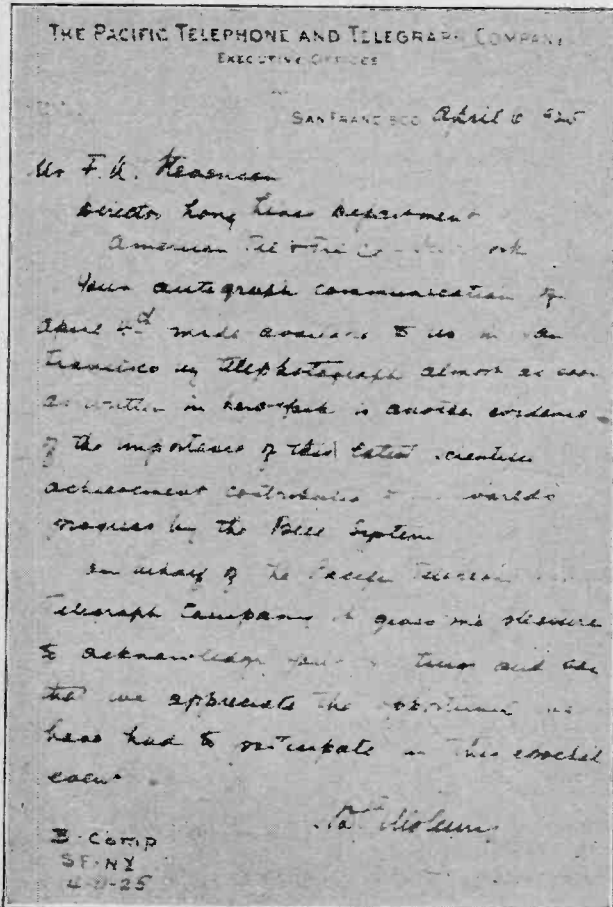 THE PACIFIC TELEPHONE AND TELEGRAPH COMPANY
EXECUTIVE OFFICES
SAN FRANCISCO April
Mr F. A. Stevenson
Director Long Lines Department
American Tel & Tel Co
Your autograph communication of
April made available to us in San
Francisco by telephotograph almost as soon
as written in New York is another evidence
of the importance of this latest scientific
achievement contributed world's
progress by the Bell System
On behalf of the Pacific Telephone
Telegraph Company it gives me pleasure
to acknowledge your and
that we appreciate the opportunity we
have had to participate in this epochal
event
B-Comp
SF-NY
25